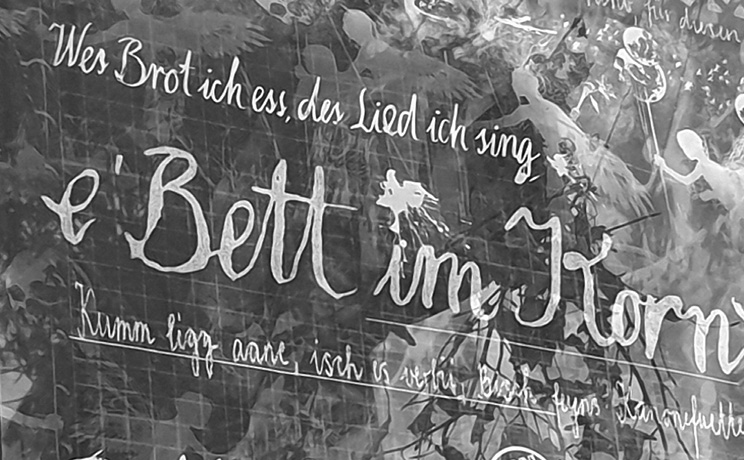 für diesen
Wes Brot ich ess, des Lied ich sing,
e' Bett im Korn
Kumm ligg aane, isch es verbi, Bisch feyns Kanonefuette